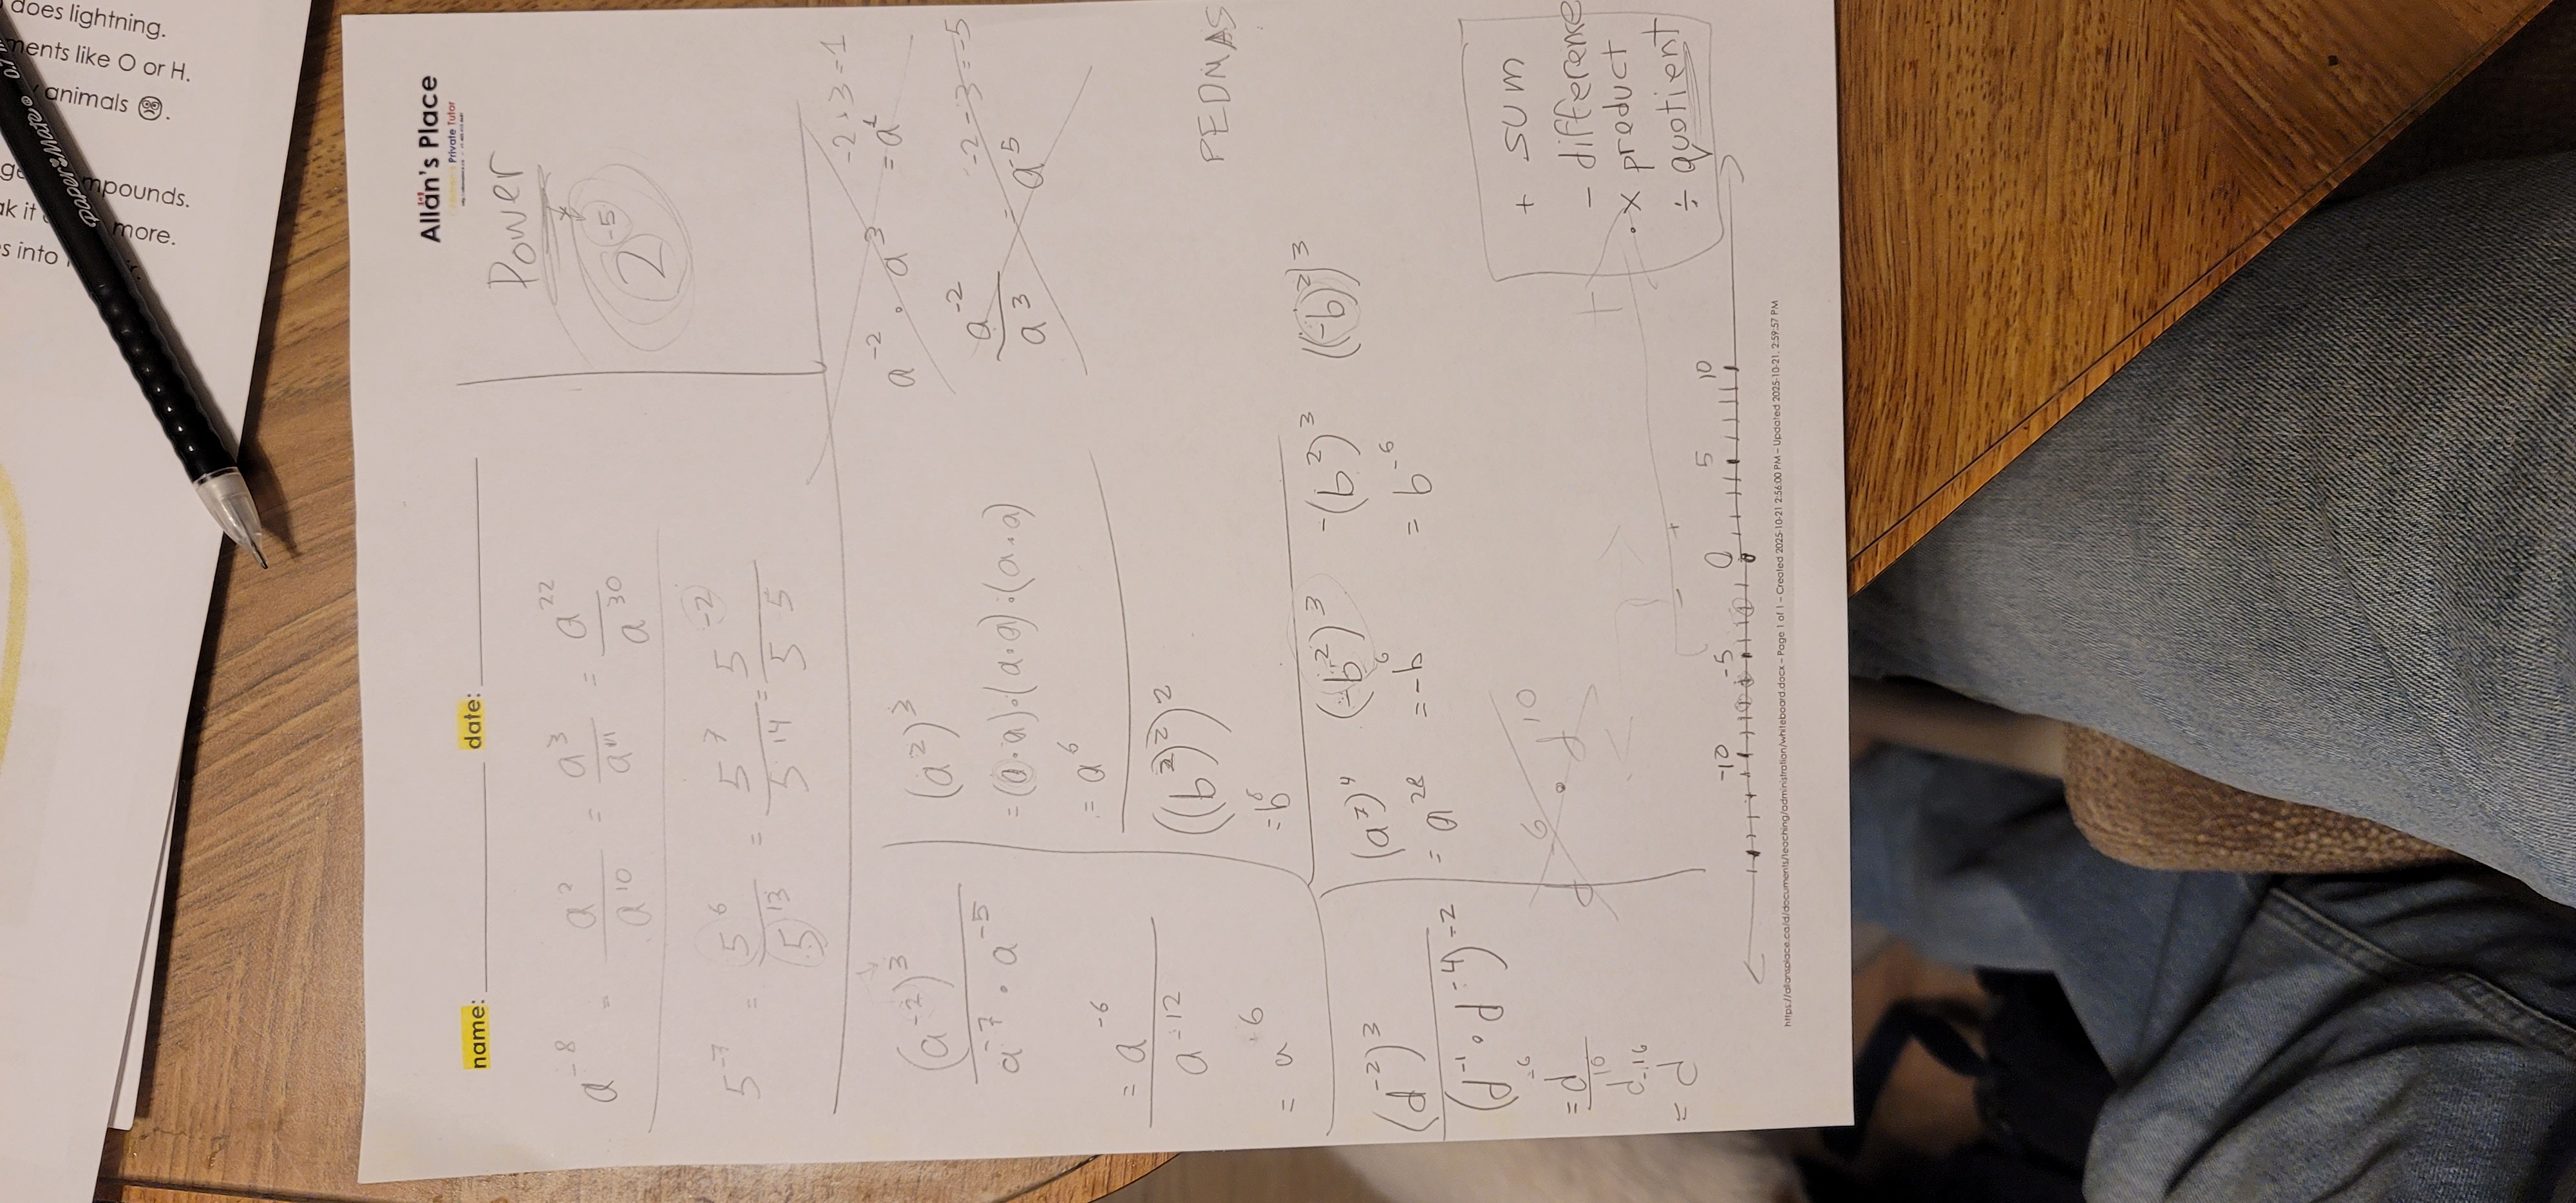 does lightning.
ments like O or H.
animals
mpounds.
ak it
more.
s into
PaperMate 0.7
name: ____________ date: ____________
Allan's Place
Private Tutor
Power
2^-5
a^-8 = a^2/a^10 = a^3/a^11 = a^22/a^30
5^-7 = 5^6/5^13 = 5^7/5^14 = 5^-2/5^5
(a^-2)^3/(a^-7 · a^-5)
= a^-6/a^-12
= a^6
(a^2)^3
= (a·a)·(a·a)·(a·a)
= a^6
a^-2 · a^3 = a^1
a^-2/a^3 = a^-5
-2-3=-5
= b^8
PEDMAS
(d^-2)^3/(d^-1 · d^-4)^-2
= d^-6/d^10
= d^-16
(a^7)^4
= a^28
(-b^2)^3
= -b^6
-(b^2)^3
= b^-6
((-b)^2)^3
d^-6 · d^10
+ sum
- difference
· × product
÷ quotient
-10 -5 0 5 10
https://allansplace.ca/d/documents/teaching/administration/whiteboard.docx – Page 1 of 1 – Created 2025-10-21 2:56:00 PM – Updated 2025-10-21, 2:59:57 PM